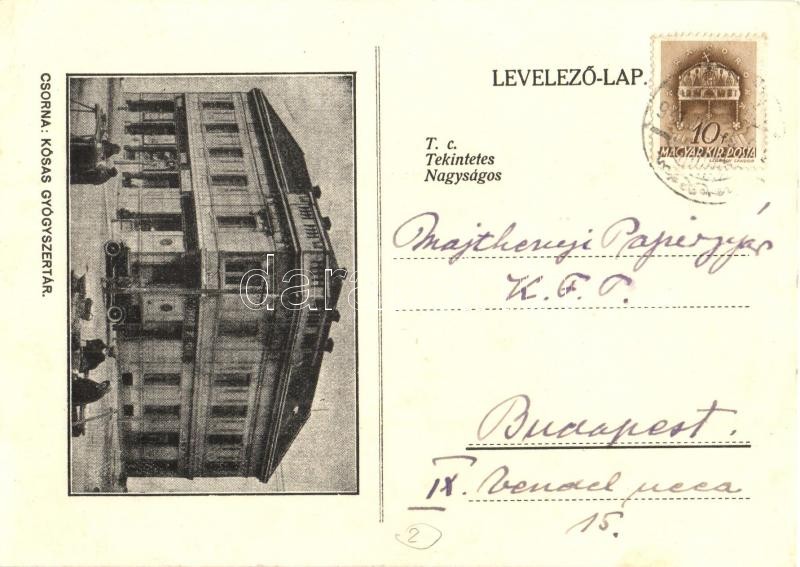 CSORNA: KÓSAS GYÓGYSZERTÁR.
LEVELEZŐ-LAP.
10f
MAGYAR KIR. POSTA
T. c.
Tekintetes
Nagyságos
Majthenyi Papirgyár
K. F. T.
Budapest.
IX. Vendel ucca
15.
2